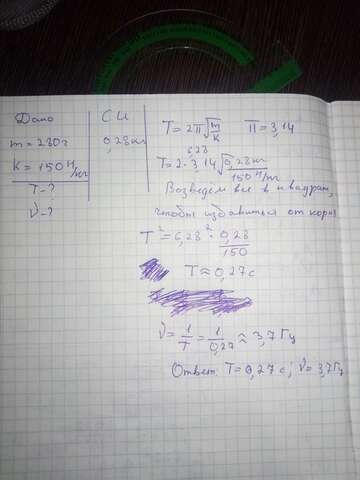 Дано
СИ
m = 280г
0,28кг
K = 150 Н/м
T - ?
ν - ?
T = 2π√m/k π = 3,14
6,28
T = 2·3,14√0,28кг/150Н/м
Возведём все в квадрат,
чтобы избавиться от корня
T² = 6,28² · 0,28/150
T ≈ 0,27с
ν = 1/T = 1/0,27 ≈ 3,7Гц
Ответ: T = 0,27с; ν = 3,7Гц